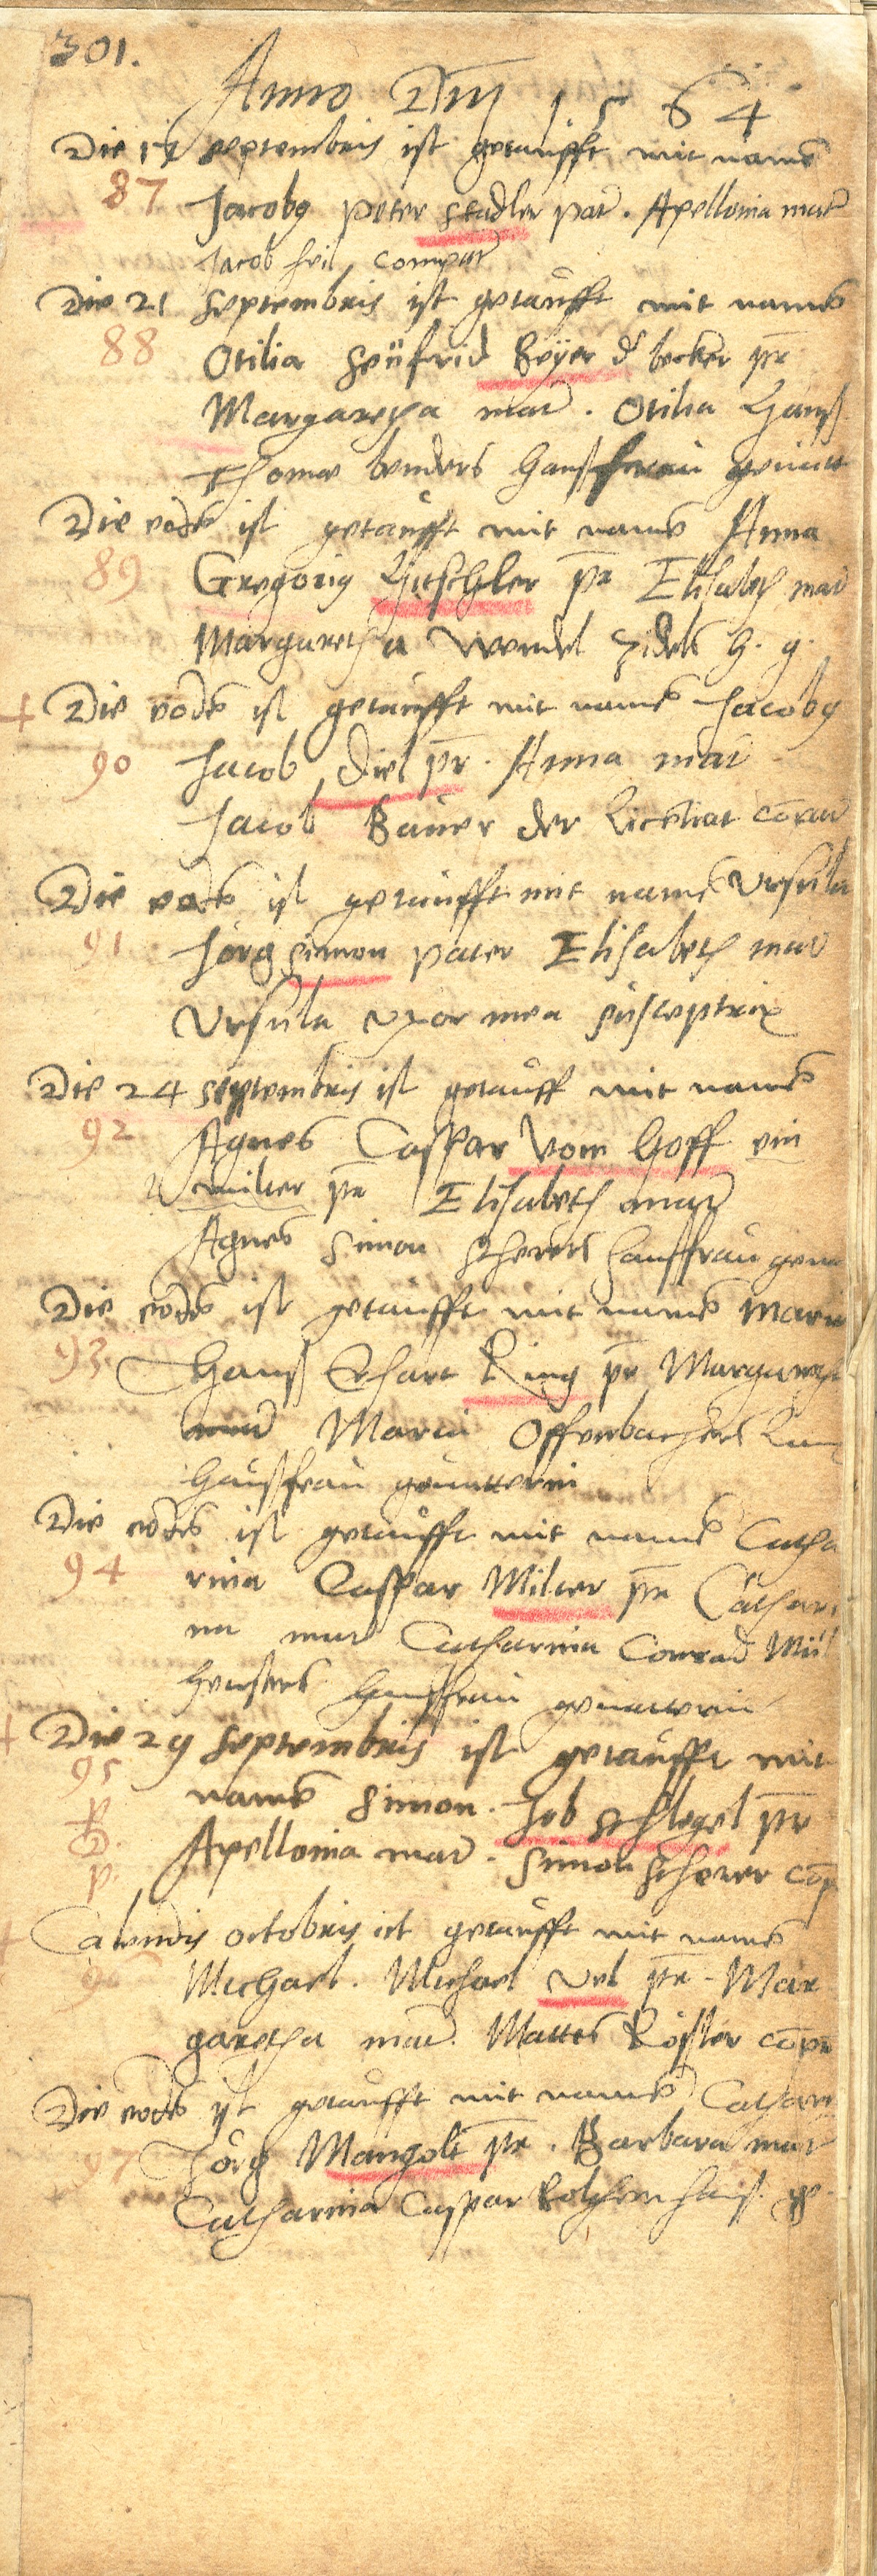 301.
Anno Dni 1564
Die 17 septembris ist getaufft mit name
87 Jacobg Peter Stadler pat. Apellonia mat
Jacob heil compat
Die 21 Septembris ist getaufft mit name
88 Otilia Seüfrid Beÿer d becker pr
Margaretha mat. Otilia Hanß
Thome benders haußfrau
Die eode ist getaufft mit name Anna
89 Gregorig pr Elisabeth mat
Margaretha Wendel h. g.
Die eode ist getaufft mit name Jacobg
90 Jacob Diel pr. Anna mat
Jacob Bauer der Licentiat
Die eode ist getaufft mit name Ursula
91 Jörg Simon pater Elisabeth mat
Ursula uxor mea susceptrix
Die 24 septembris ist getauff mit name
92 Agnes Caspar vom Hoff ein
pr Elisabeth mat
Agnes Simon Scherers haußfrau geua
Die eode ist getaufft mit name Maria
93. Hanß Ehart Ring pr Margareth
mat Maria Offenbachers
haußfrau geuatterin
Die eode ist getaufft mit name Catha
94 rina Caspar Milter pr Cathari
na mat Catharina Conrad Mül
heusers haußfrau geuatterin
Die 29 Septembris ist getaufft mit
95 name Simon. Job Schlegel pr
Apellonia mat. Simon Scherer cop
Calendis octobris ist getaufft mit name
96 Michael. Michael Vel pr. Mar
garetha mat. Mattes Rösler
Die eode ist getaufft mit name Cathari
97 Jörg Mangolt pr. Barbara mat
Catharina Caspar